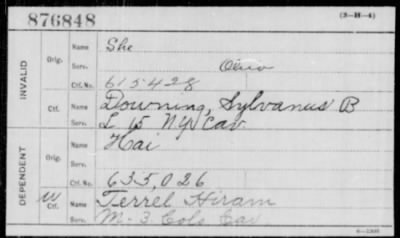 876848
(3-H-4)
INVALID
Orig.
Name She
Serv. Ohio
Ctf. No. 615428
Ctf.
Name Downing, Sylvanus B
Serv. L 15 N.Y. Cav
DEPENDENT
Orig.
Name Hai
Serv.
Ctf. No. 635,026
W Ctf.
Name Terrel Hiram
Serv. M-3 Colo Cav